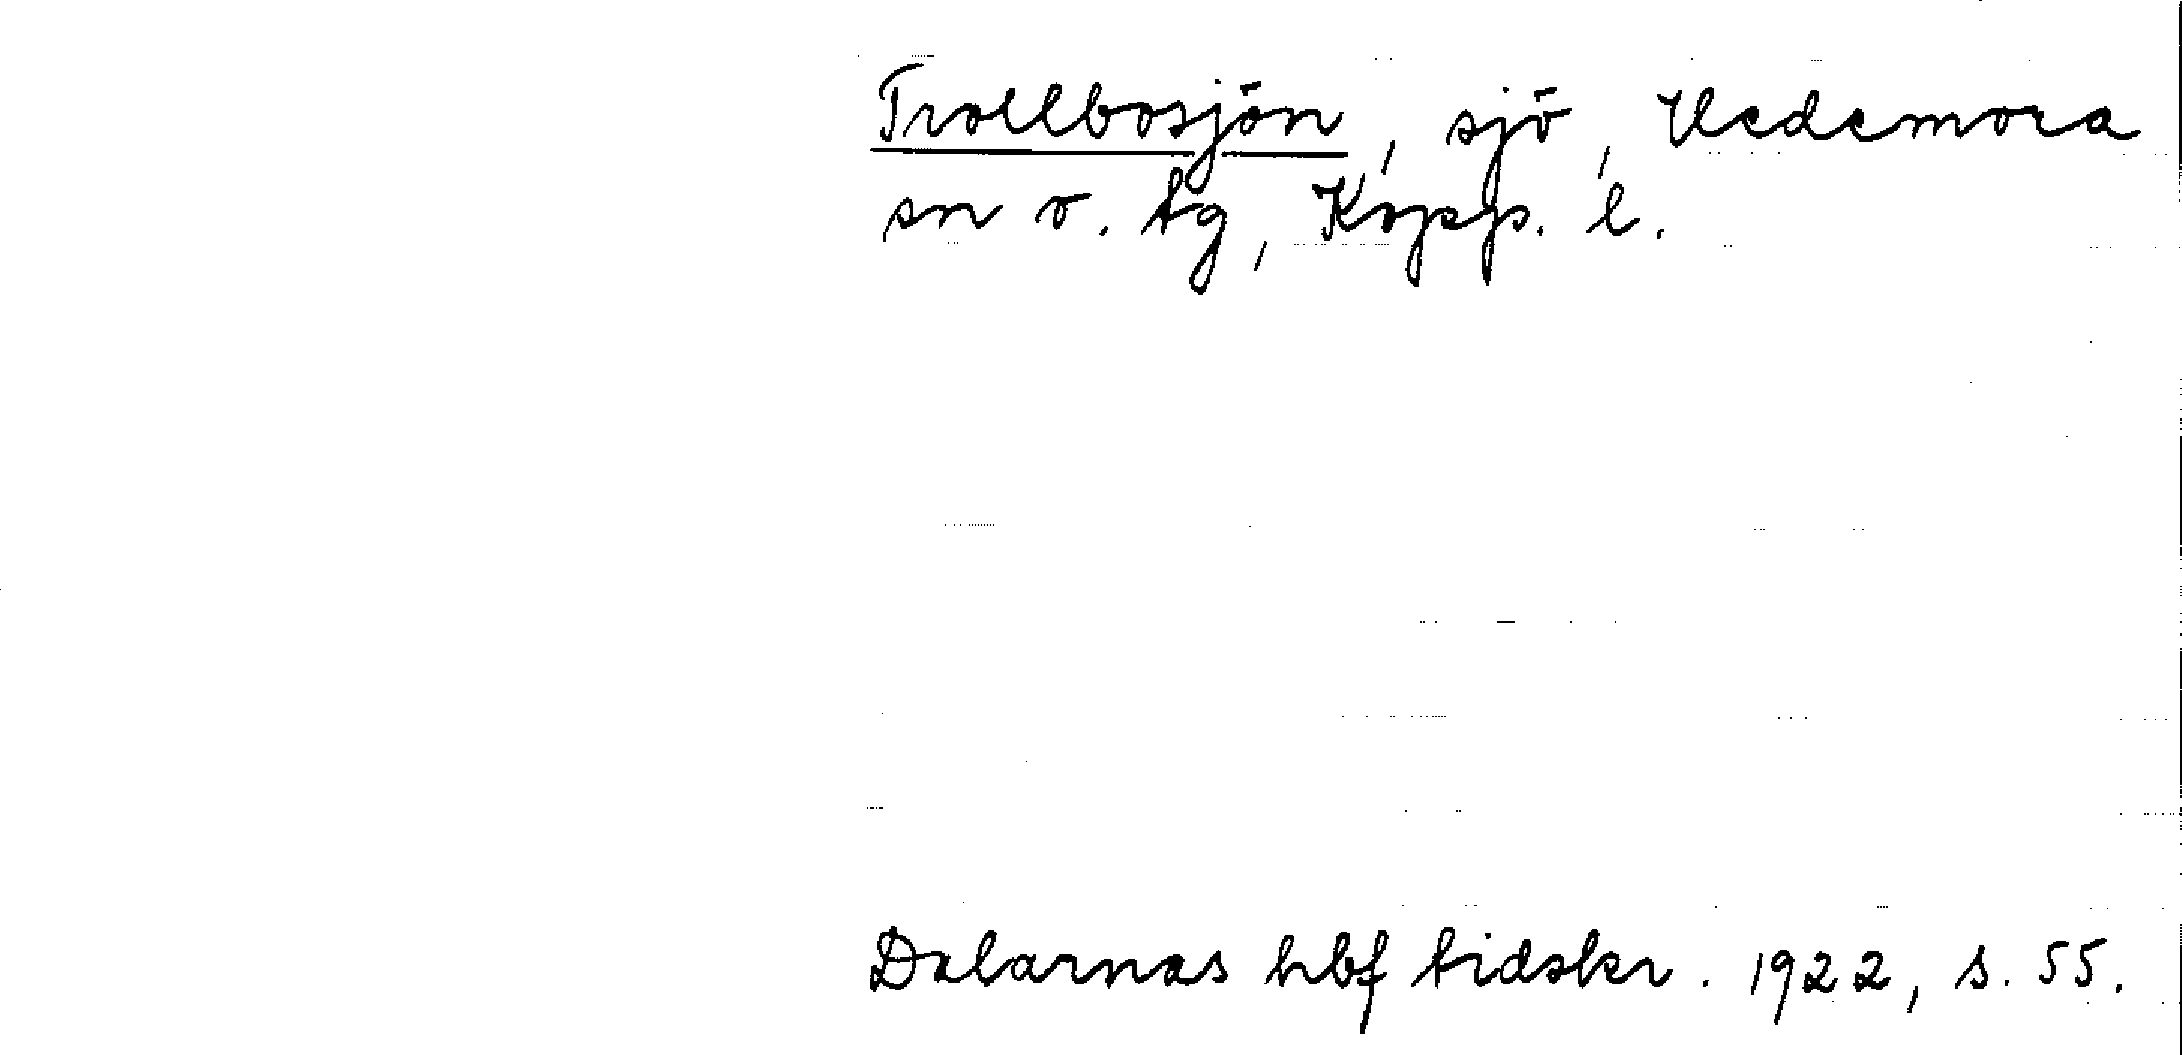 Trollbosjön, sjö, Hedemora
sn o. tg, Kopp. l.
Dalarnas hbf tidskr. 1922, s. 55.